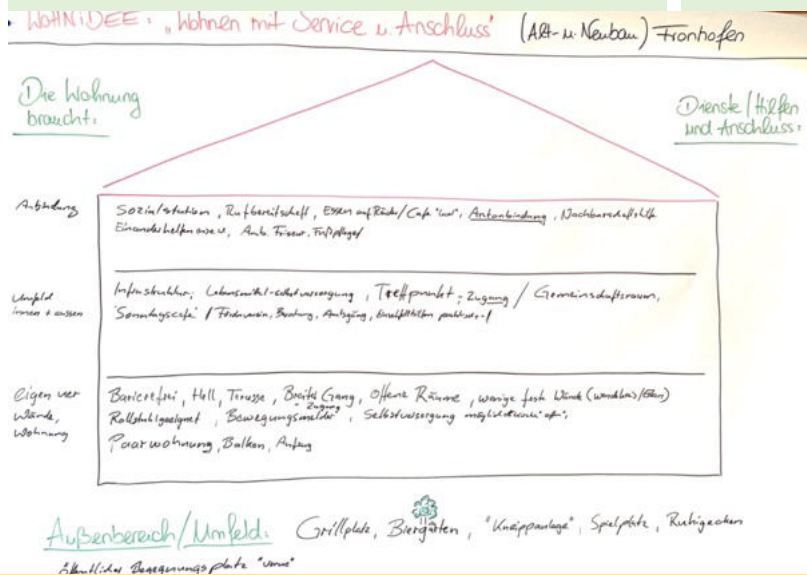 WOHNIDEE: „Wohnen mit Service u. Anschluss" (Alt- u. Neubau) Fronhofen
Die Wohnung
braucht:
Dienste / Hilfen
und Anschluss:
Anbindung
Sozialstation, Rufbereitschaft, Essen auf Räder / Cafe "    ", Autoanbindung, Nachbarschaftshilfe
Einander helfen     , Amb. Friseur, Fußpflege /
Umfeld
innen + aussen
Infrastruktur, Lebensmittel-selbstversorgung, Treffpunkt, Zugang / Gemeinschaftsraum,
'Sonntagscafe' / Förderverein, Beratung,
Eigen ver
Wände,
Wohnung
Barierefrei, Hell, Terasse, Breiter Gang, Offene Räume, wenige feste Wände
Zugang
Rollstuhlgeeignet, Bewegungsmelder, Selbstversorgung
Paarwohnung, Balkon, Aufzug
Außenbereich / Umfeld: Grillplatz, Biergarten, "Kneippanlage", Spielplatz, Ruhigecken
öffentlicher Begegnungsplatz "vorne"